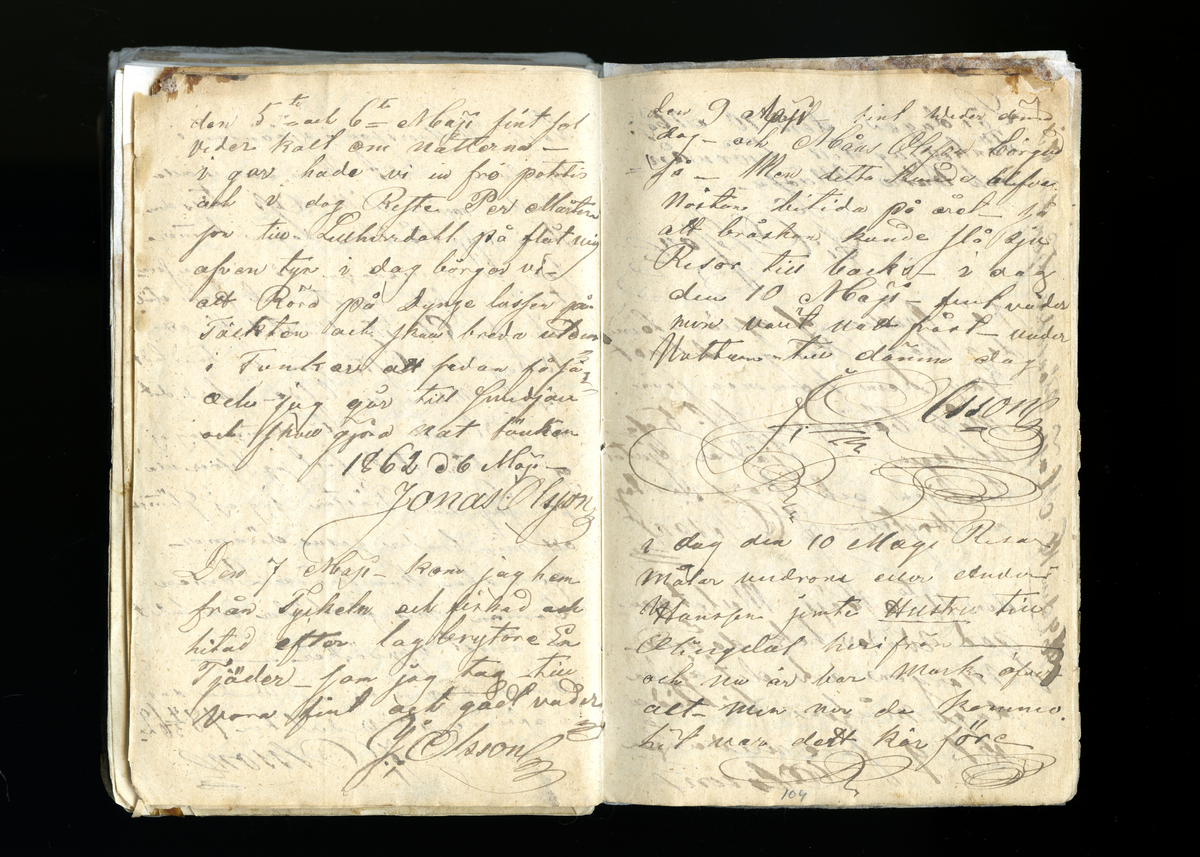 den 5te och 6te Maji fint sol
veder kalt om nätterna –
i gar hade vi en frö potatis
och i dag Reste Per Mårten
för till på flåtning
afven i dag börgar vi –
att Köra på Dynge lassen på
Täckten och skall breda utden
i Funkar att sedan få så
och jag går till Smidjan
och skall gjöra nat
1862 d 6 Maji –
Jonas Olsson
Den 7 Maji – kom jag hem
från och fiskad och
hitad efter lag brytare En
Tjäder – som jag tog till
vara fint och gådt väder
J. Olsson
den 9 Maji fint veder denna
dag – och Måns Olsson börgad
så – Men detta
Nästan bitida på året – så
att bråskan kunde slå sju
Resor till backs – i dag
den 10 Maji – fint väder
men varit natt – under
Natten till denna dag
J. Olsson
i dag den 10 Maji Resa
Målar eller Anders
Hanssen jemte Hustru till
Elingdal herifrån
och nu är bar Mark öfver
alt – men när de kommo
hit var dett kör före
104